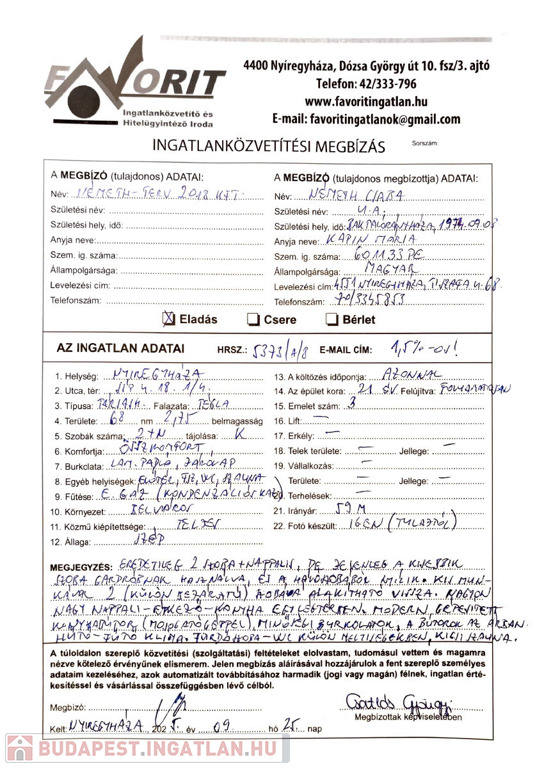 FAVORIT
Ingatlanközvetítő és
Hitelügyintéző Iroda
4400 Nyíregyháza, Dózsa György út 10. fsz/3. ajtó
Telefon: 42/333-796
www.favoritingatlan.hu
E-mail: favoritingatlanok@gmail.com
INGATLANKÖZVETÍTÉSI MEGBÍZÁS Sorszám
A MEGBÍZÓ (tulajdonos) ADATAI:
Név: NÉMETH-TERV 2018 KFT.
Születési név:
Születési hely, idő:
Anyja neve:
Szem. ig. száma:
Állampolgársága:
Levelezési cím:
Telefonszám:
A MEGBÍZÓ (tulajdonos megbízottja) ADATAI:
Név: NÉMETH CSABA
Születési név: U.A.
Születési hely, idő: BAKTALÓRÁNTHÁZA, 1974.09.08
Anyja neve: KAPIN MÁRIA
Szem. ig. száma: 601133PE
Állampolgársága: MAGYAR
Levelezési cím: 4551 NYÍREGYHÁZA, TISZA U. 68.
Telefonszám: 70/3345853
X Eladás Csere Bérlet
AZ INGATLAN ADATAI HRSZ.: 5373/A/8 E-MAIL CÍM: 1,5%-os!
1. Helység: NYÍREGYHÁZA
2. Utca, tér: 18. 1/4.
3. Típusa: TÁRSASH. Falazata: TÉGLA
4. Területe: 68 nm 2,75 belmagasság
5. Szobák száma: 2+N tájolása: K
6. Komfortja: ÖSSZKOMFORT
7. Burkolata: LAM. PADLÓ, JÁRÓLAP
8. Egyéb helyiségek: ELŐTÉR, SZAUNA
9. Fűtése: E. GÁZ (KONDENZÁCIÓS KAZÁN)
10. Környezet: BELVÁROS
11. Közmű kiépítettsége: TELJES
12. Állaga: SZÉP
13. A költözés időpontja: AZONNAL
14. Az épület kora: 21 ÉV Felújítva: FOLYAMATOSAN
15. Emelet szám: 3
16. Lift: —
17. Erkély: —
18. Telek területe: — Jellege: —
19. Vállalkozás: —
Területe: — Jellege: —
20. Terhelések: —
21. Irányár: 59 M
22. Fotó készült: IGEN (TULAJTÓL)
MEGJEGYZÉS: EREDETILEG 2 SZOBA+NAPPALIS, DE JELENLEG A KISEBBIK
SZOBA GARDRÓBNAK HASZNÁLVA, ÉS A HÁLÓSZOBÁBÓL NYÍLIK. KIS MUN-
KÁVAL 2 (KÜLÖN BEJÁRATÚ) SZOBÁVÁ ALAKÍTHATÓ VISSZA. NAGYON
NAGY NAPPALI-ÉTKEZŐ-KONYHA EGY LÉGTÉRBEN, MODERN, GÉPESÍTETT
KONYHABÚTOR (MOSOGATÓGÉPPEL), MINŐSÉGI BURKOLATOK, A BÚTOROK AZ ÁRBAN.
HŰTŐ-FŰTŐ KLÍMA. FÜRDŐSZOBA-WC KÜLÖN HELYISÉGEKBEN, KICSI SZAUNA.
A túloldalon szereplő közvetítési (szolgáltatási) feltételeket elolvastam, tudomásul vettem és magamra
nézve kötelező érvényűnek elismerem. Jelen megbízás aláírásával hozzájárulok a fent szereplő személyes
adataim kezeléséhez, azok automatizált továbbításához harmadik (jogi vagy magán) félnek, ingatlan érté-
kesítéssel és vásárlással összefüggésben lévő célból.
Megbízó: Csatlós Györgyi
Megbízottak képviseletében
Kelt: NYÍREGYHÁZA 2025. év 09 hó 25. nap
BUDAPEST.INGATLAN.HU